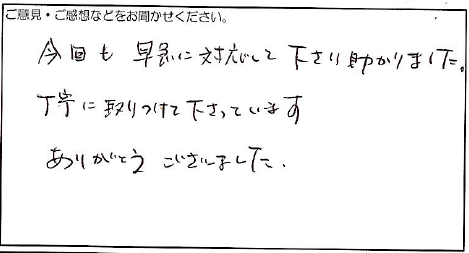 ご意見・ご感想などをお聞かせください。
今回も早急に対応して下さり助かりました。
丁寧に取りつけて下さっています
ありがとうございました。